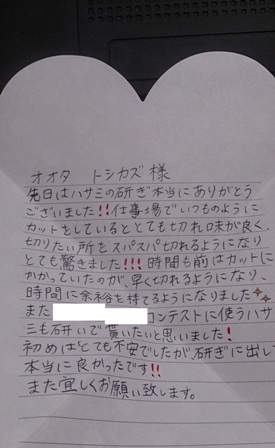 オオタ トシカズ 様
先日はハサミの研ぎ本当にありがとう
ございました!!仕事場でいつものように
カットをしているととても切れ味が良く、
切りたい所をスパスパ切れるようになり
とても驚きました!!!時間も前はカットに
かかっていたのが、早く切れるようになり、
時間に余裕を持てるようになりました
また コンテストに使うハサ
ミも研いで貰いたいと思いました!
初めはとても不安でしたが、研ぎに出して
本当に良かったです!!
また宜しくお願い致します。